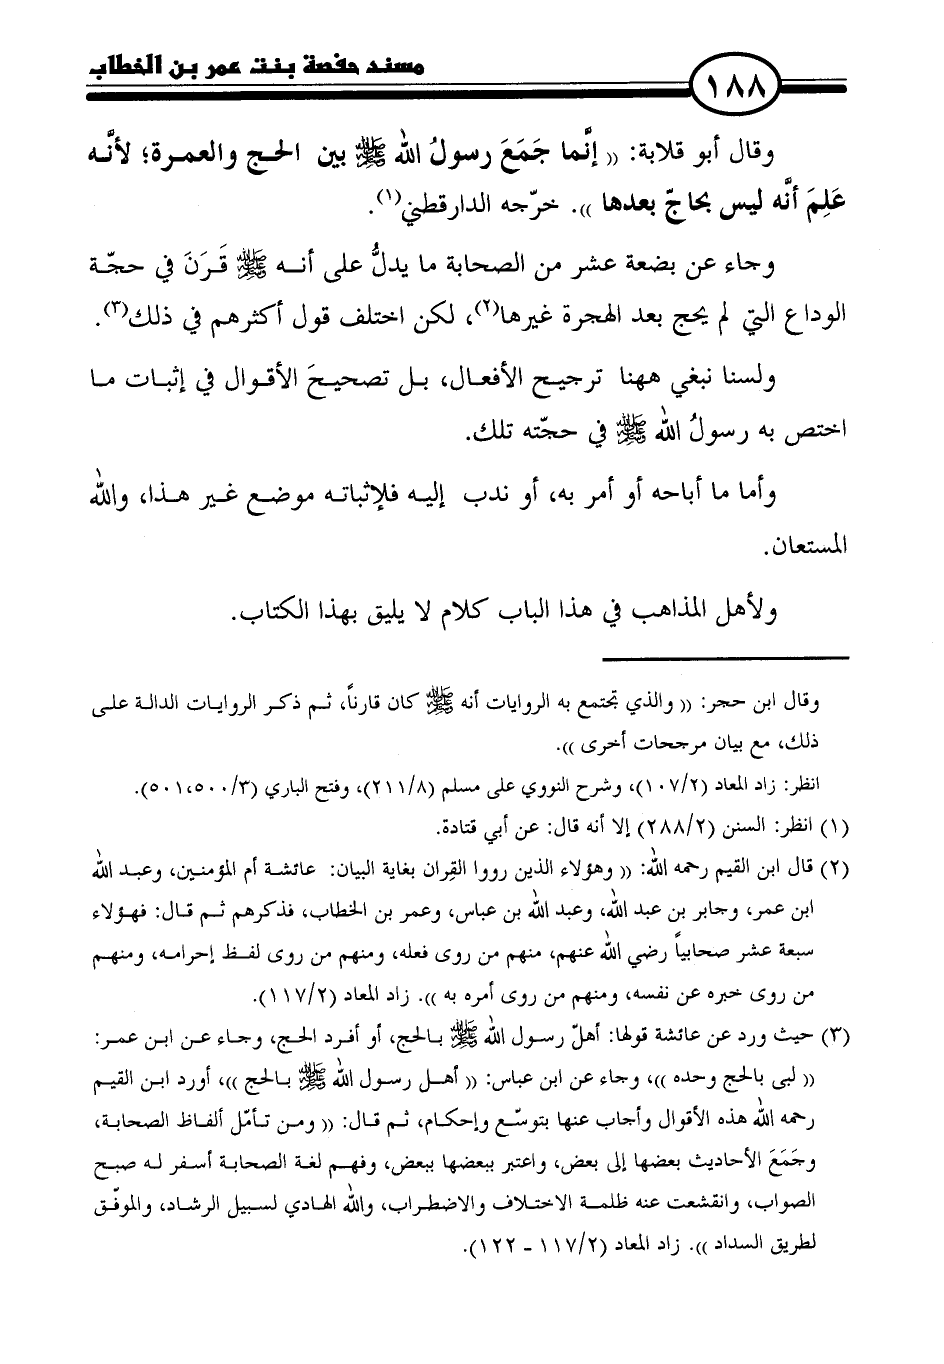 مسند حفصة بنت عمر بن الخطاب
١٨٨
وقال أبو قلابة: (( إنَّما جَمَعَ رسولُ الله ﷺ بين الحج والعمرة؛ لأنَّه
عَلِمَ أنَّه ليس بحاجّ بعدها )). خرّجه الدارقطني(١).
وجاء عن بضعة عشر من الصحابة ما يدلُّ على أنه ﷺ قَرَنَ في حجّة
الوداع التي لم يحج بعد الهجرة غيرها(٢)، لكن اختلف قول أكثرهم في ذلك(٣).
ولسنا نبغي ههنا ترجيح الأفعال، بل تصحيحَ الأقوال في إثبات ما
اختص به رسولُ الله ﷺ في حجّته تلك.
وأما ما أباحه أو أمر به، أو ندب إليه فلإثباته موضع غير هذا، والله
المستعان.
ولأهل المذاهب في هذا الباب كلام لا يليق بهذا الكتاب.
وقال ابن حجر: (( والذي تجتمع به الروايات أنه ﷺ كان قارناً، ثم ذكر الروايات الدالة على
ذلك، مع بيان مرجحات أخرى )).
انظر: زاد المعاد (١٠٧/٢)، وشرح النووي على مسلم (٢١١/٨)، وفتح الباري (٥٠١،٥٠٠/٣).
(١) انظر: السنن (٢٨٨/٢) إلا أنه قال: عن أبي قتادة.
(٢) قال ابن القيم رحمه الله: (( وهؤلاء الذين رووا القِران بغاية البيان: عائشة أم المؤمنين، وعبد الله
ابن عمر، وجابر بن عبد الله، وعبد الله بن عباس، وعمر بن الخطاب، فذكرهم ثم قال: فهؤلاء
سبعة عشر صحابياً رضي الله عنهم، منهم من روى فعله، ومنهم من روى لفظ إحرامه، ومنهم
من روى خبره عن نفسه، ومنهم من روى أمره به )). زاد المعاد (١١٧/٢).
(٣) حيث ورد عن عائشة قولها: أهلّ رسول الله ﷺ بالحج، أو أفرد الحج، وجاء عن ابن عمر:
(( لبى بالحج وحده ))، وجاء عن ابن عباس: (( أهل رسول الله ﷺ بالحج ))، أورد ابن القيم
رحمه الله هذه الأقوال وأجاب عنها بتوسّع وإحكام، ثم قال: (( ومن تأمّل ألفاظ الصحابة،
وجَمَعَ الأحاديث بعضها إلى بعض، واعتبر ببعضها ببعض، وفهم لغة الصحابة أسفر له صبح
الصواب، وانقشعت عنه ظلمة الاختلاف والاضطراب، والله الهادي لسبيل الرشاد، والموفّق
لطريق السداد )). زاد المعاد (١١٧/٢ - ١٢٢).